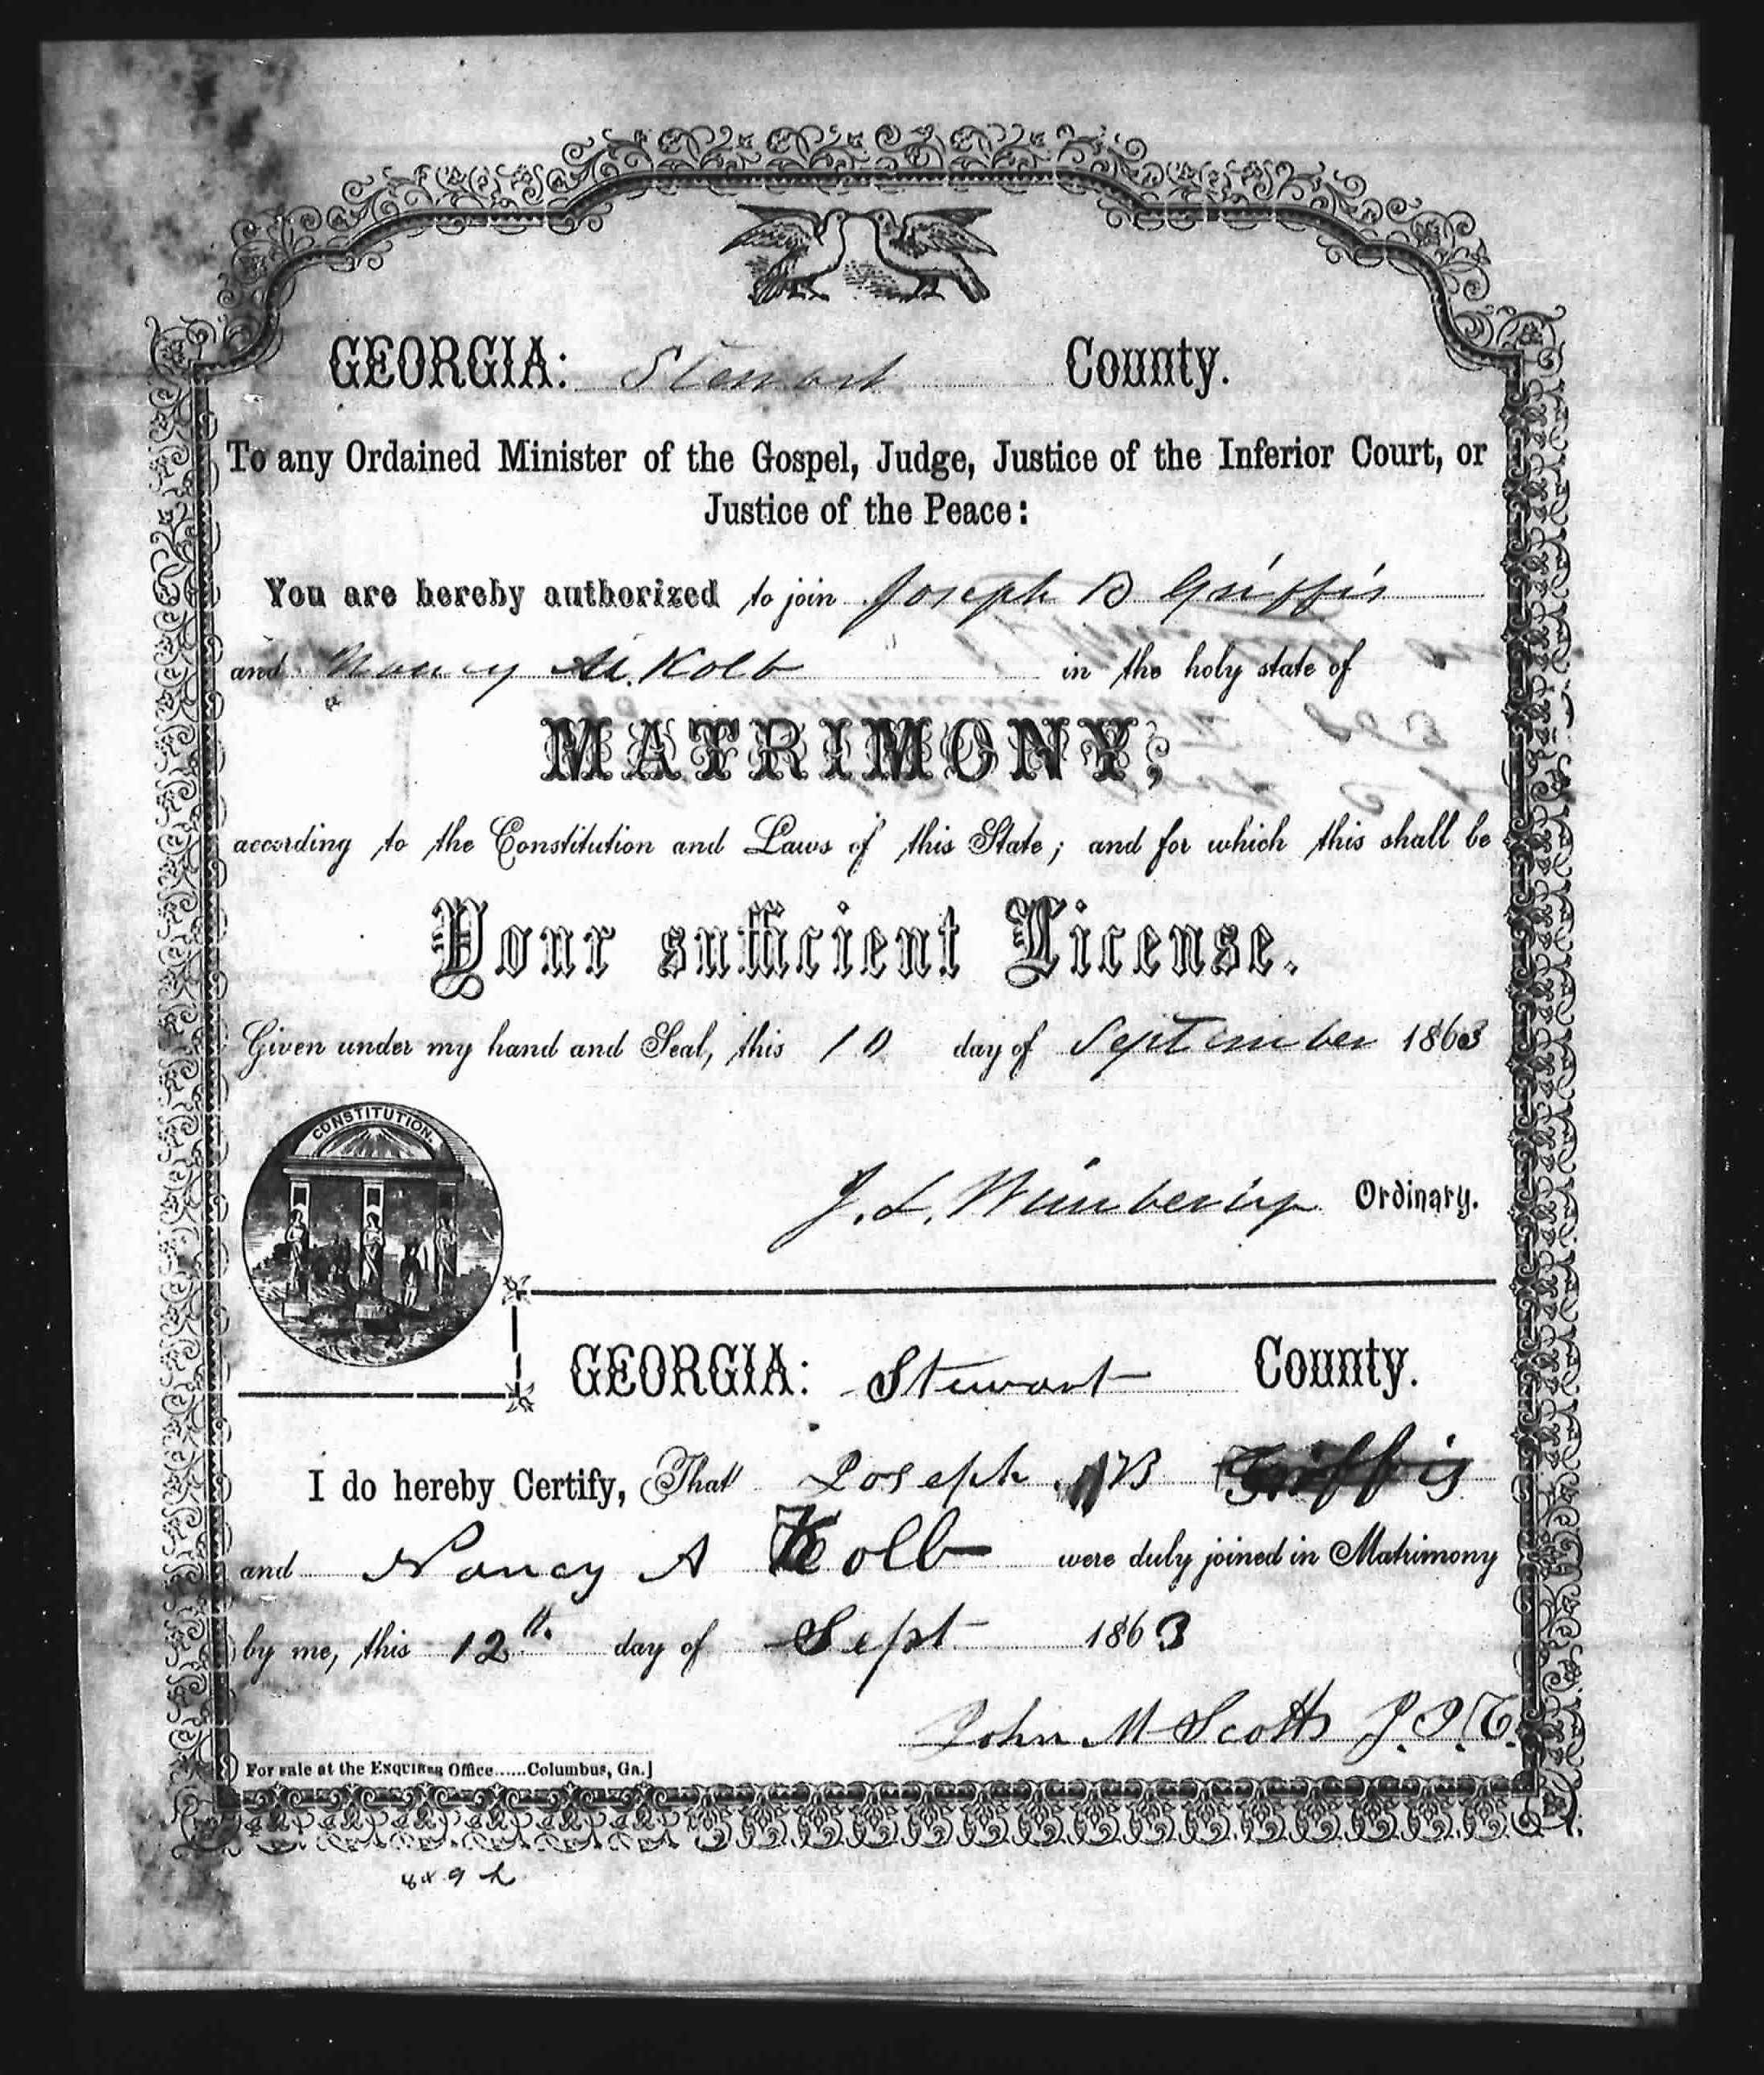 GEORGIA: Stewart County.
To any Ordained Minister of the Gospel, Judge, Justice of the Inferior Court, or
Justice of the Peace:
You are hereby authorized to join Joseph B Griffis
and Nancy Kolb in the holy state of
MATRIMONY,
according to the Constitution and Laws of this State; and for which this shall be
Your sufficient License.
Given under my hand and Seal, this 10 day of September 1863
CONSTITUTION.
J. L. Wimberly Ordinary.
GEORGIA: Stewart County.
I do hereby Certify, That Joseph B Griffis
and Nancy A Kolb were duly joined in Matrimony
by me, this 12th. day of Sept 1863
John M Scott
For sale at the ENQUIRER Office......Columbus, Ga.]